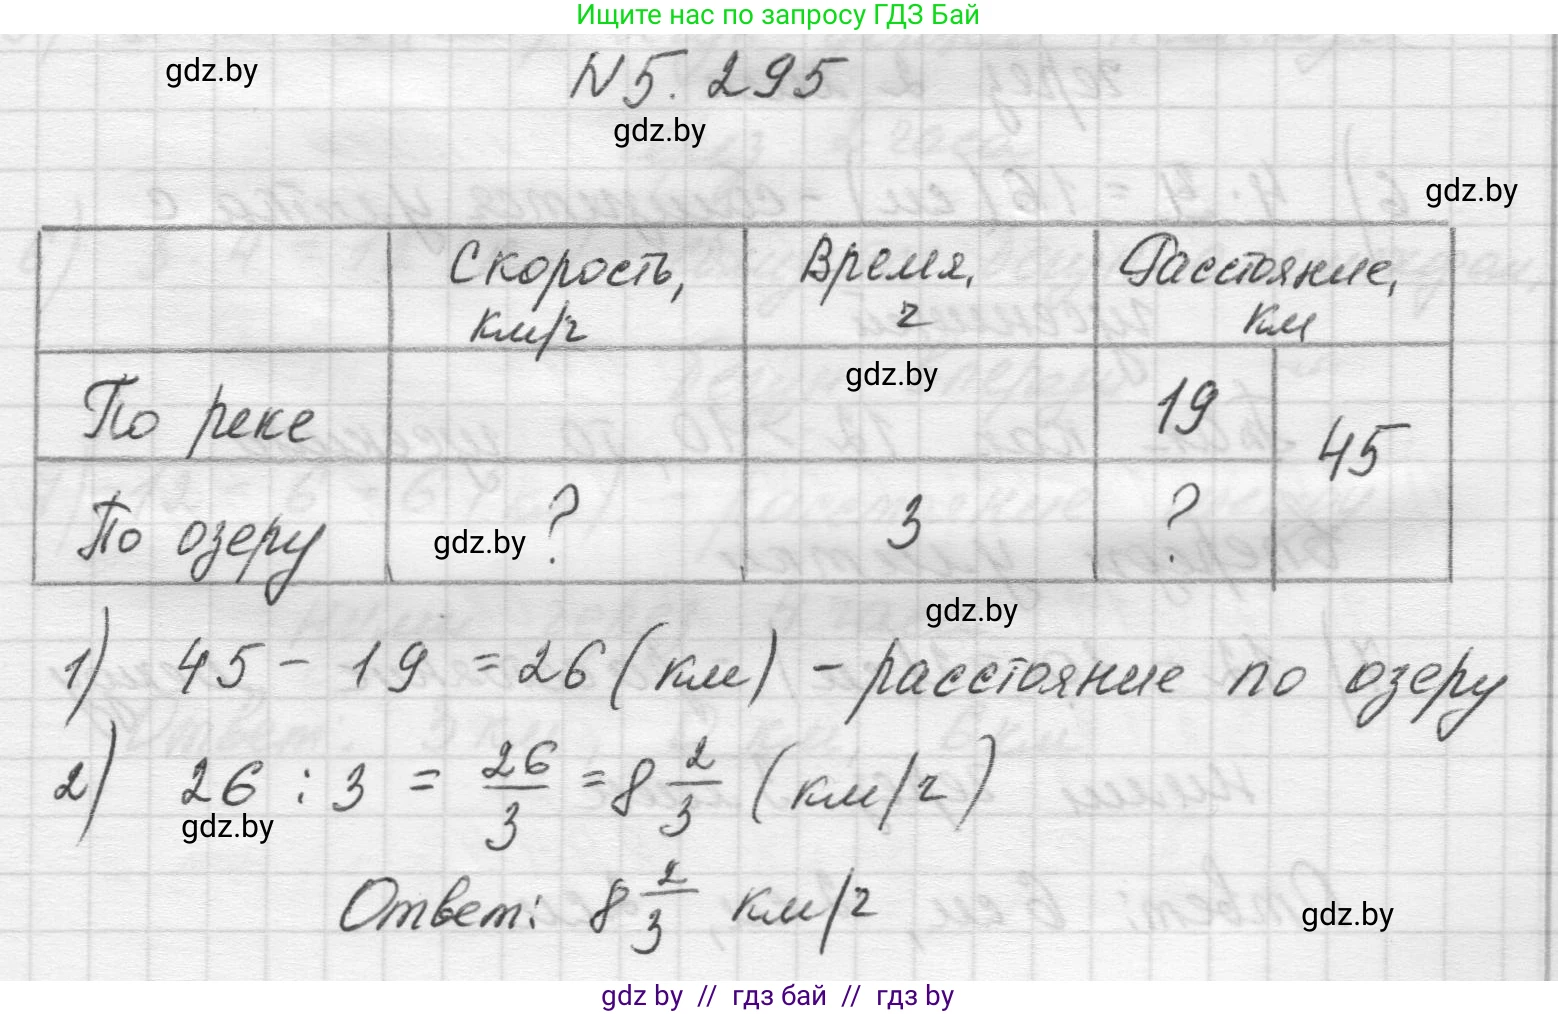 Ищите нас по запросу ГДЗ Бай
gdz.by
N 5. 295
gdz.by
gdz.by
Скорость, км/ч
Время, ч
Расстояние, км
По реке
gdz.by
19
45
По озеру
gdz.by
?
3
?
gdz.by
1) 45 - 19 = 26 (км) - расстояние по озеру
2) 26 : 3 = 26/3 = 8 2/3 (км/ч)
gdz.by
Ответ: 8 2/3 км/ч
gdz.by
gdz by // гдз бай // гдз by